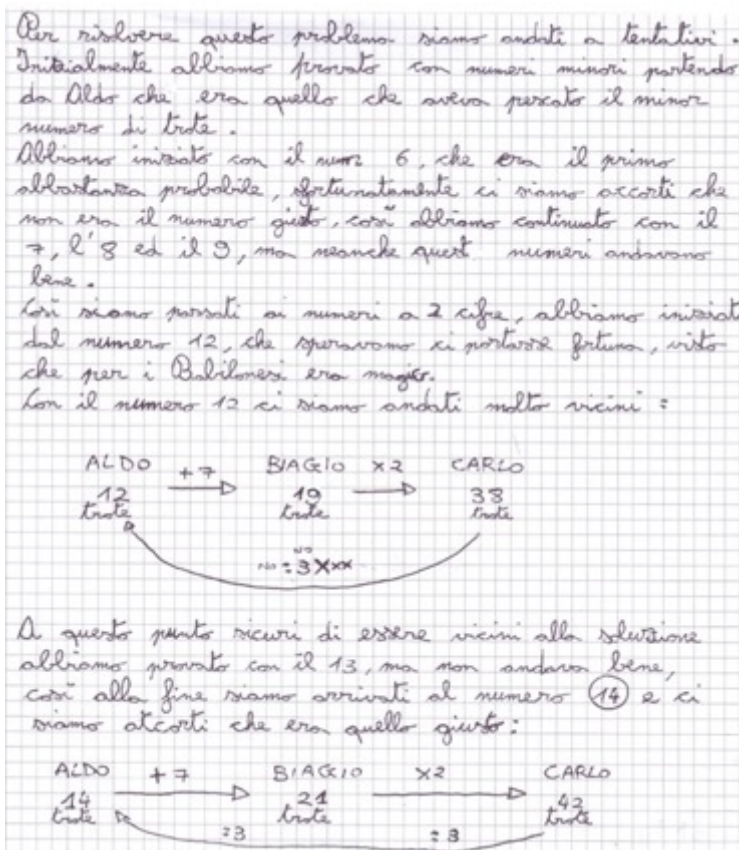 Per risolvere questo problema siamo andati a tentativi.
Initialmente abbiamo provato con numeri minori partendo
da Aldo che era quello che aveva pescato il minor
numero di trote.
Abbiamo iniziato con il num 6, che era il primo
abbastanza probabile, sfortunatamente ci siamo accorti che
non era il numero giusto, così abbiamo continuato con il
7, l'8 ed il 9, ma neanche quest numeri andavano
bene.
Così siamo passati ai numeri a 2 cifre, abbiamo iniziat
dal numero 12, che speravamo ci portasse fortuna, visto
che per i Babilonesi era magico.
Con il numero 12 ci siamo andati molto vicini :
ALDO +7 BIAGIO x2 CARLO
12 19 38
trote trote trote
NO
NO :3 XXX
A questo punto sicuri di essere vicini alla soluzione
abbiamo provato con il 13, ma non andava bene,
così alla fine siamo arrivati al numero 14 e ci
siamo atcorti che era quello giusto :
ALDO +7 BIAGIO x2 CARLO
14 21 42
trote trote trote
:3 :3